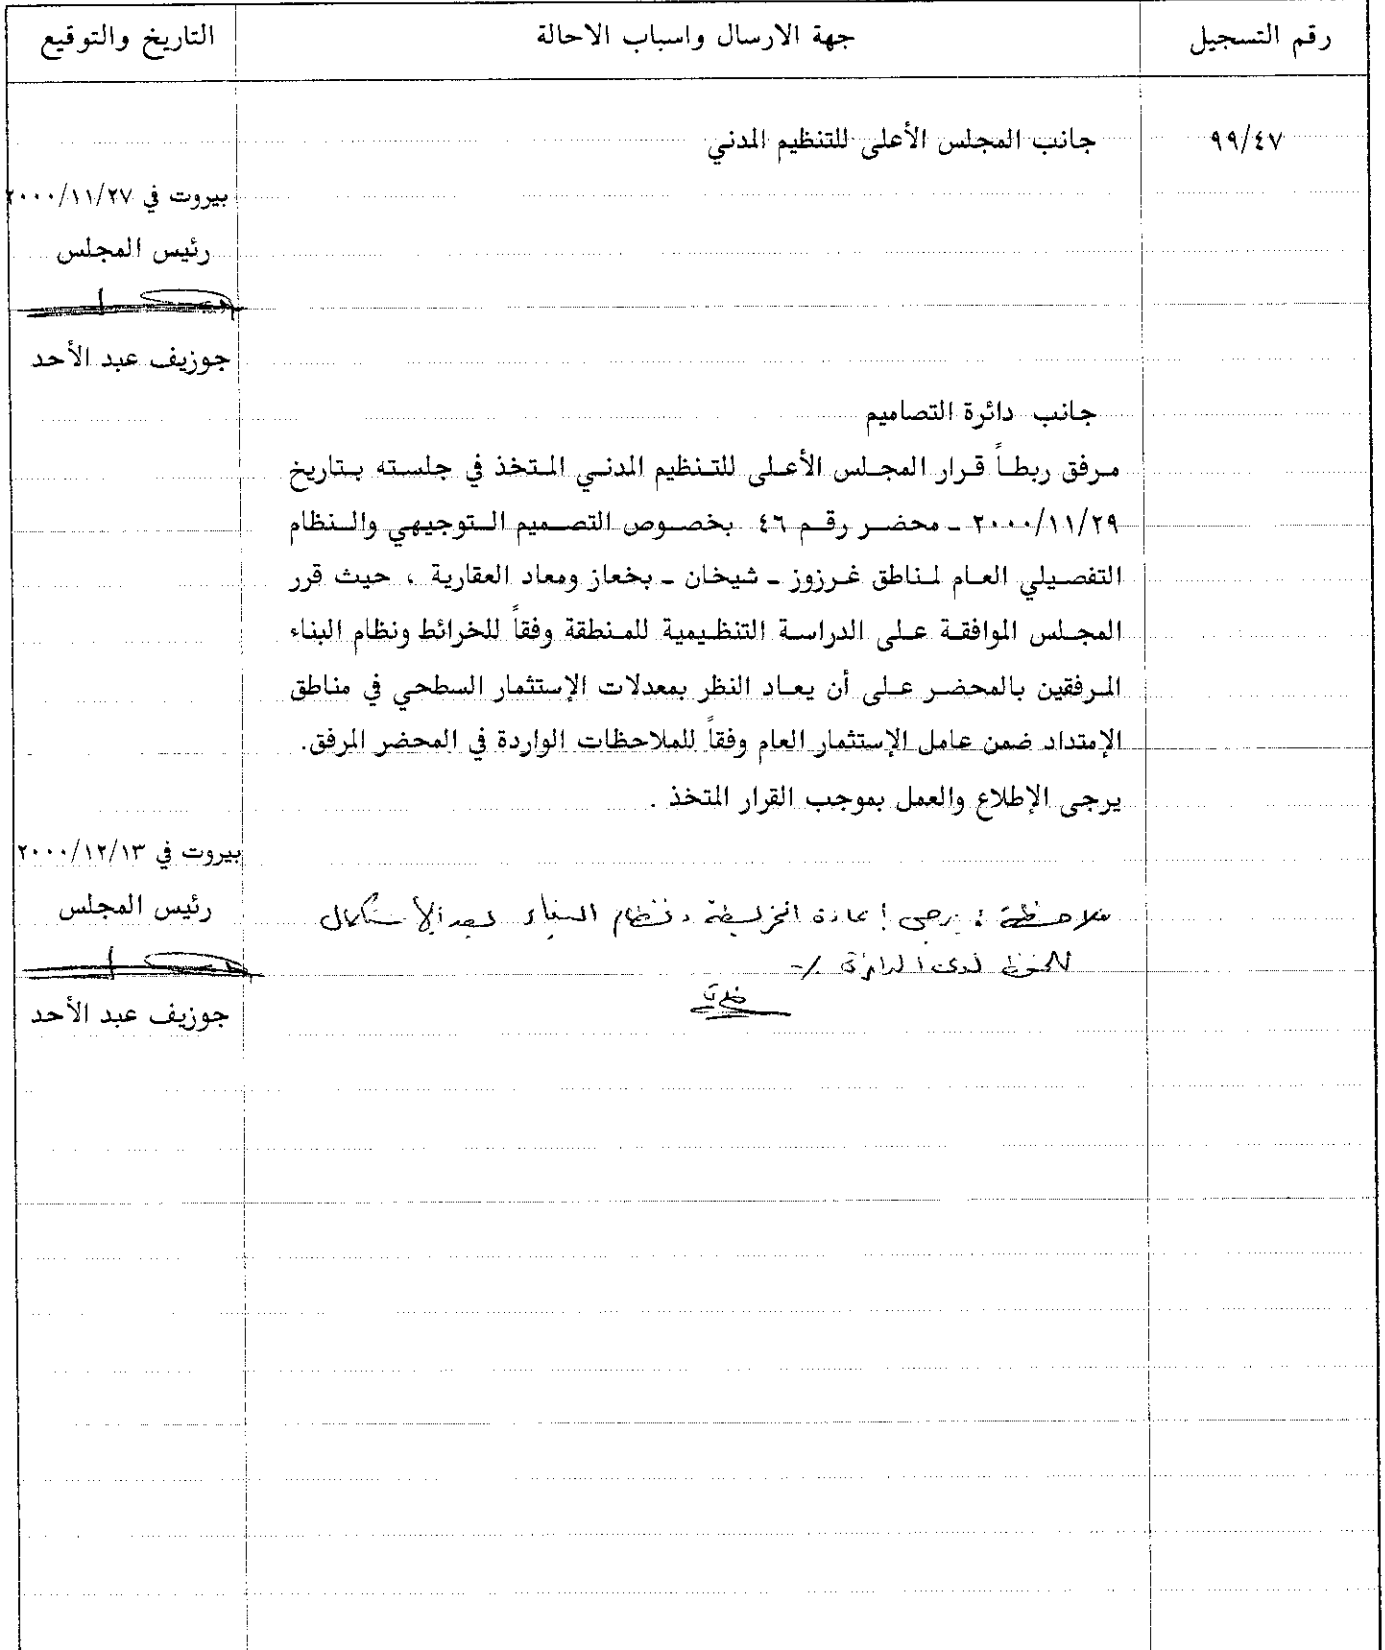 رقم التسجيل
جهة الارسال واسباب الاحالة
التاريخ والتوقيع
٩٩/٤٧
جانب المجلس الأعلى للتنظيم المدني
بيروت في ٢٠٠٠/١١/٢٧
رئيس المجلس
جوزيف عبد الأحد
جانب دائرة التصاميم
مرفق ربطاً قرار المجلس الأعلى للتنظيم المدني المتخذ في جلسته بتاريخ
٢٠٠٠/١١/٢٩ - محضر رقم ٤٦ بخصوص التصميم التوجيهي والنظام
التفصيلي العام لمناطق غرزوز - شيخان - بخعاز ومعاد العقارية ، حيث قرر
المجلس الموافقة على الدراسة التنظيمية للمنطقة وفقاً للخرائط ونظام البناء
المرفقين بالمحضر على أن يعاد النظر بمعدلات الإستثمار السطحي في مناطق
الإمتداد ضمن عامل الإستثمار العام وفقاً للملاحظات الواردة في المحضر المرفق.
يرجى الإطلاع والعمل بموجب القرار المتخذ .
بيروت في ٢٠٠٠/١٢/١٣
رئيس المجلس
جوزيف عبد الأحد
ملاحظة : يرجى إعادة الخريطة ونظام البناء بعد الإستكمال
للحفظ لدى الدائرة -/.